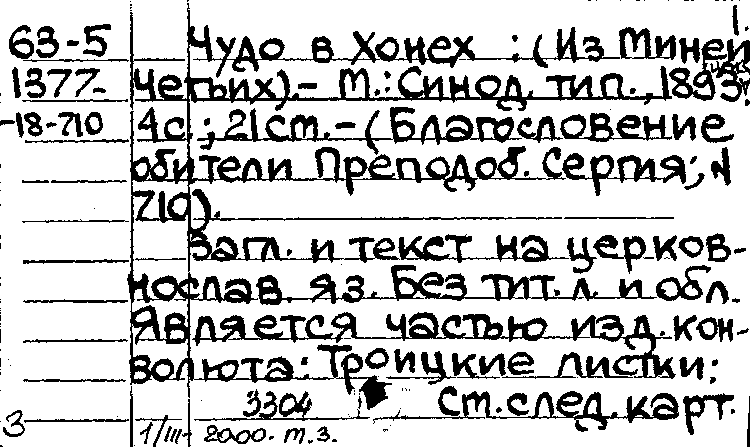 1.
63-5 Чудо в Хонех : (Из Миней
1377- Четьих).- М.: Синод. тип., 1893.
-18-710 4с.; 21см.- (Благословение
обители Преподоб. Сергия; N
710).
Загл. и текст на церков-
нослав. яз. Без тит. л. и обл.
Является частью изд. кон-
волюта: Троицкие листки:
3304 Ст. след. карт.
3 1/III- 2000. т. з.